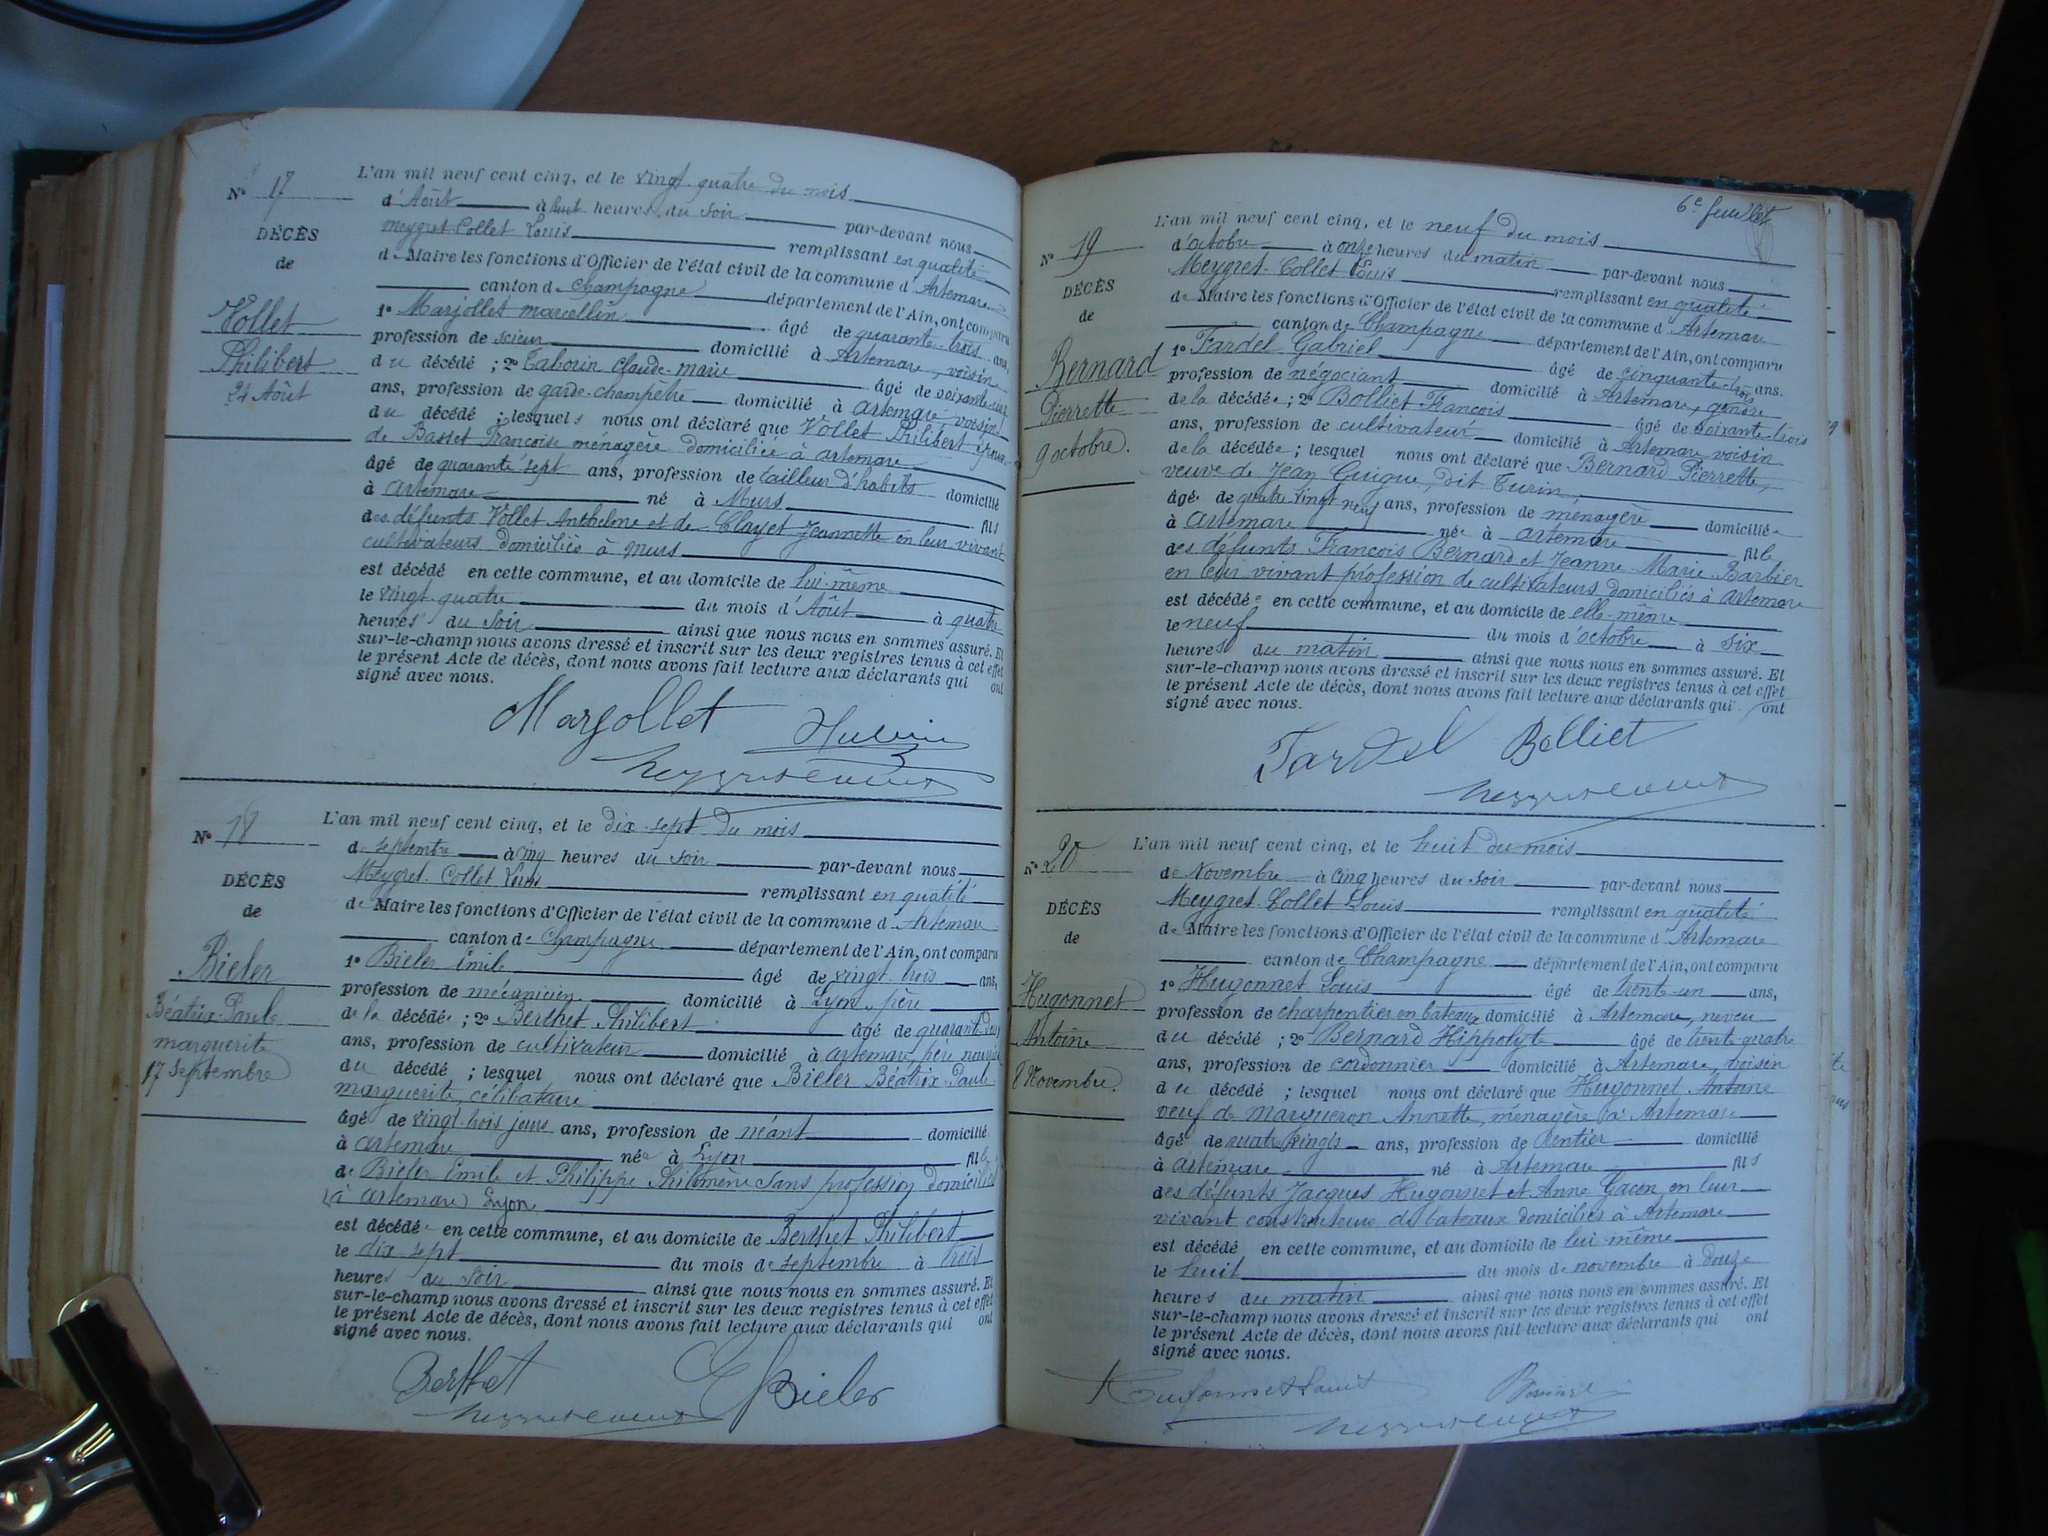 N° 17
DÉCÈS
de
Vollet
Philibert
24 Août
L'an mil neuf cent cinq, et le vingt quatre du mois
d'Août à huit heures du soir par-devant nous
Meygret Collet Louis remplissant en qualité
de Maire les fonctions d'Officier de l'état civil de la commune d'Artemare
canton de Champagne département de l'Ain, ont comparu
1° Marjollet Marcellin âgé de quarante trois ans,
profession de scieur domicilié à Artemare, voisin
du décédé ; 2° Taborin Claude-Marie âgé de soixante-un
ans, profession de garde-champêtre domicilié à Artemare, voisin
du décédé ; lesquels nous ont déclaré que Vollet Philibert époux
de Basset Françoise ménagère domiciliée à artemare
âgé de quarante sept ans, profession de tailleur d'habits domicilié
à Artemare né à Murs fils
des défunts Vollet Anthelme et de Clayet Jeannette en leur vivant
cultivateurs domiciliés à Murs
est décédé en cette commune, et au domicile de lui-même
le vingt-quatre du mois d'Août à quatre
heures du soir ainsi que nous nous en sommes assuré. Et
sur-le-champ nous avons dressé et inscrit sur les deux registres tenus à cet effet
le présent Acte de décès, dont nous avons fait lecture aux déclarants qui ont
signé avec nous.
Marjollet
N° 18
DÉCÈS
de
Bieler
Béatrix Paule
marguerite
17 Septembre
L'an mil neuf cent cinq, et le dix-sept du mois
de septembre à cinq heures du soir par-devant nous
Meygret-Collet Louis remplissant en qualité
de Maire les fonctions d'Officier de l'état civil de la commune d'Artemare
canton de Champagne département de l'Ain, ont comparu
1° Bieler Emile âgé de vingt trois ans,
profession de mécanicien domicilié à Lyon, père
de la décédée ; 2° Berthet Philibert âgé de quarante deux
ans, profession de cultivateur domicilié à artemare, père nourricier
du décédé ; lesquel nous ont déclaré que Bieler Béatrix Paule
marguerite, célibataire
âgé de vingt-trois jours ans, profession de néant domicilié
à artemare née à Lyon fille
de Bieler Emile et Philippe Philomène sans profession domiciliés
(à artemare) Lyon
est décédée en cette commune, et au domicile de Berthet Philibert
le dix-sept du mois de septembre à trois
heures du soir ainsi que nous nous en sommes assuré. Et
sur-le-champ nous avons dressé et inscrit sur les deux registres tenus à cet effet
le présent Acte de décès, dont nous avons fait lecture aux déclarants qui ont
signé avec nous.
Berthet E Bieler
6e feuillet
N° 19
DÉCÈS
de
Bernard
Pierrette
9 octobre.
L'an mil neuf cent cinq, et le neuf du mois
d'octobre à onze heures du matin par-devant nous
Meygret-Collet Louis remplissant en qualité
de Maire les fonctions d'Officier de l'état civil de la commune d'Artemare
canton de Champagne département de l'Ain, ont comparu
1° Tardel Gabriel âgé de cinquante-trois ans.
profession de négociant domicilié à Artemare, gendre
de la décédée ; 2° Bolliet François âgé de soixante-trois
ans, profession de cultivateur domicilié à Artemare voisin
de la décédée ; lesquel nous ont déclaré que Bernard Pierrette,
veuve de Jean Guigue, dit Turin,
âgée de quatre vingt neuf ans, profession de ménagère domiciliée
à artemare née à artemare fille
des défunts François Bernard et Jeanne Marie Barbier
en leur vivant profession de cultivateurs domiciliés à artemare
est décédée en cette commune, et au domicile de elle-même
le neuf du mois d'octobre à six
heures du matin ainsi que nous nous en sommes assuré. Et
sur-le-champ nous avons dressé et inscrit sur les deux registres tenus à cet effet
le présent Acte de décès, dont nous avons fait lecture aux déclarants qui ont
signé avec nous.
Tardel Bolliet
N° 20
DÉCÈS
de
Hugonnet
Antoine
8 Novembre.
L'an mil neuf cent cinq, et le huit du mois
de Novembre à cinq heures du soir par-devant nous
Meygret-Collet Louis remplissant en qualité
de Maire les fonctions d'Officier de l'état civil de la commune d'Artemare
canton de Champagne département de l'Ain, ont comparu
1° Hugonnet Louis âgé de trente-un ans,
profession de charpentier en bateaux domicilié à Artemare, neveu
du décédé ; 2° Bernard Hippolyte âgé de trente quatre
ans, profession de cordonnier domicilié à Artemare, voisin
du décédé ; lesquel nous ont déclaré que Hugonnet Antoine
veuf de Margueron Annette, ménagère à Artemare
âgé de quatre vingts ans, profession de Rentier domicilié
à artemare né à Artemare fils
des défunts Jacques Hugonnet et Anne Gacon en leur
vivant constructeurs de bateaux domiciliés à Artemare
est décédé en cette commune, et au domicile de lui-même
le huit du mois de novembre à douze
heures du matin ainsi que nous nous en sommes assuré. Et
sur-le-champ nous avons dressé et inscrit sur les deux registres tenus à cet effet
le présent Acte de décès, dont nous avons fait lecture aux déclarants qui ont
signé avec nous.
Hugonnet Louis